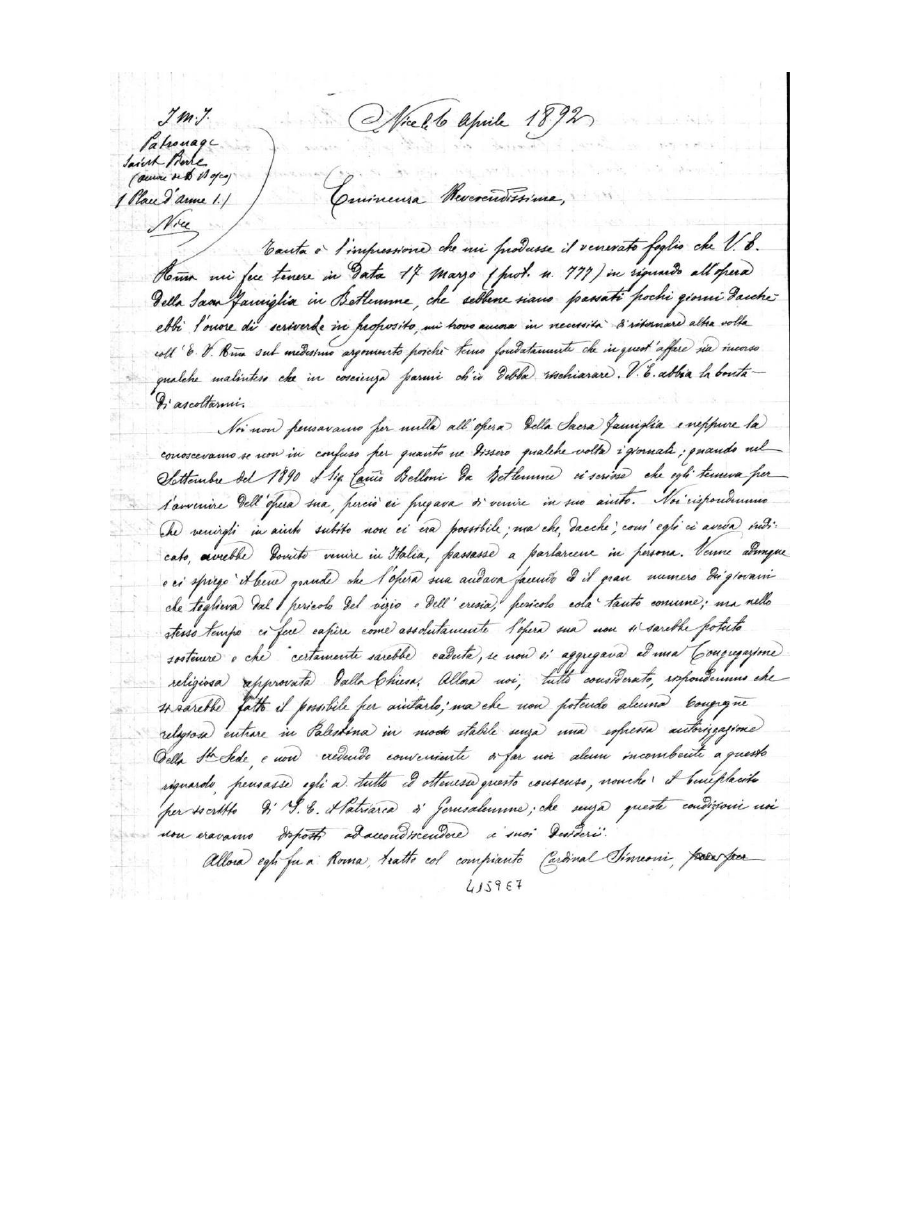 J. M. J.
Patronage
Saint Pierre
(œuvre de D. Bosco)
1 Place d'arme 1.)
Nice
Nice le 6 Aprile 1892
Eminenza Reverendissima,
Tanta è l'impressione che mi produsse il venerato foglio che V. E.
Rma mi fece tenere in data 17 Marzo (prot. n. 777) in riguardo all'opera
della Sacra Famiglia in Betlemme, che sebbene siano passati pochi giorni dacchè
ebbi l'onore di scriverle in proposito, mi trovo ancora in necessità di ritornare altra volta
coll'E. V. Rma sul medesimo argomento poichè temo fondatamente che in quest'affare sia incorso
qualche malinteso che in coscienza parmi ch'io debba rischiarare. V. E. abbia la bontà
di ascoltarmi.
Noi non pensavamo per nulla all'opera della Sacra Famiglia e neppure la
conoscevamo se non in confuso per quanto ne dissero qualche volta i giornali; quando nel
Settembre del 1890 il Sig. Canco Belloni da Betlemme ci scrisse che egli temeva per
l'avvenire dell'opera sua, perciò ci pregava di venire in suo aiuto. Noi rispondemmo
che venirgli in aiuto subito non ci era possibile; ma che, dacchè, com'egli ci aveva indi-
cato, avrebbe dovuto venire in Italia, passasse a parlarcene in persona. Venne adunque
e ci spiegò il bene grande che l'opera sua andava facendo ed il gran numero di giovani
che toglieva dal pericolo del vizio e dell'eresia, pericolo colà tanto comune; ma nello
stesso tempo ci fece capire come assolutamente l'opera sua non si sarebbe potuto
sostenere e che certamente sarebbe caduta, se non si aggregava ad una Congregazione
religiosa approvata dalla Chiesa. Allora noi, tutto considerato, rispondemmo che
si sarebbe fatto il possibile per aiutarlo; ma che non potendo alcuna Congregne
religiosa entrare in Palestina in modo stabile senza una espressa autorizzazione
della Sta Sede, e non credendo conveniente di far noi alcun incombente a questo
riguardo, pensasse egli a tutto ed ottenesse questo consenso, nonchè il beneplacito
per iscritto di S. E. il Patriarca di Gerusalemme; che senza queste condizioni noi
non eravamo disposti ad accondiscendere a suoi desiderii.
Allora egli fu a Roma, trattò col compianto Cardinal Simeoni,
4159E7